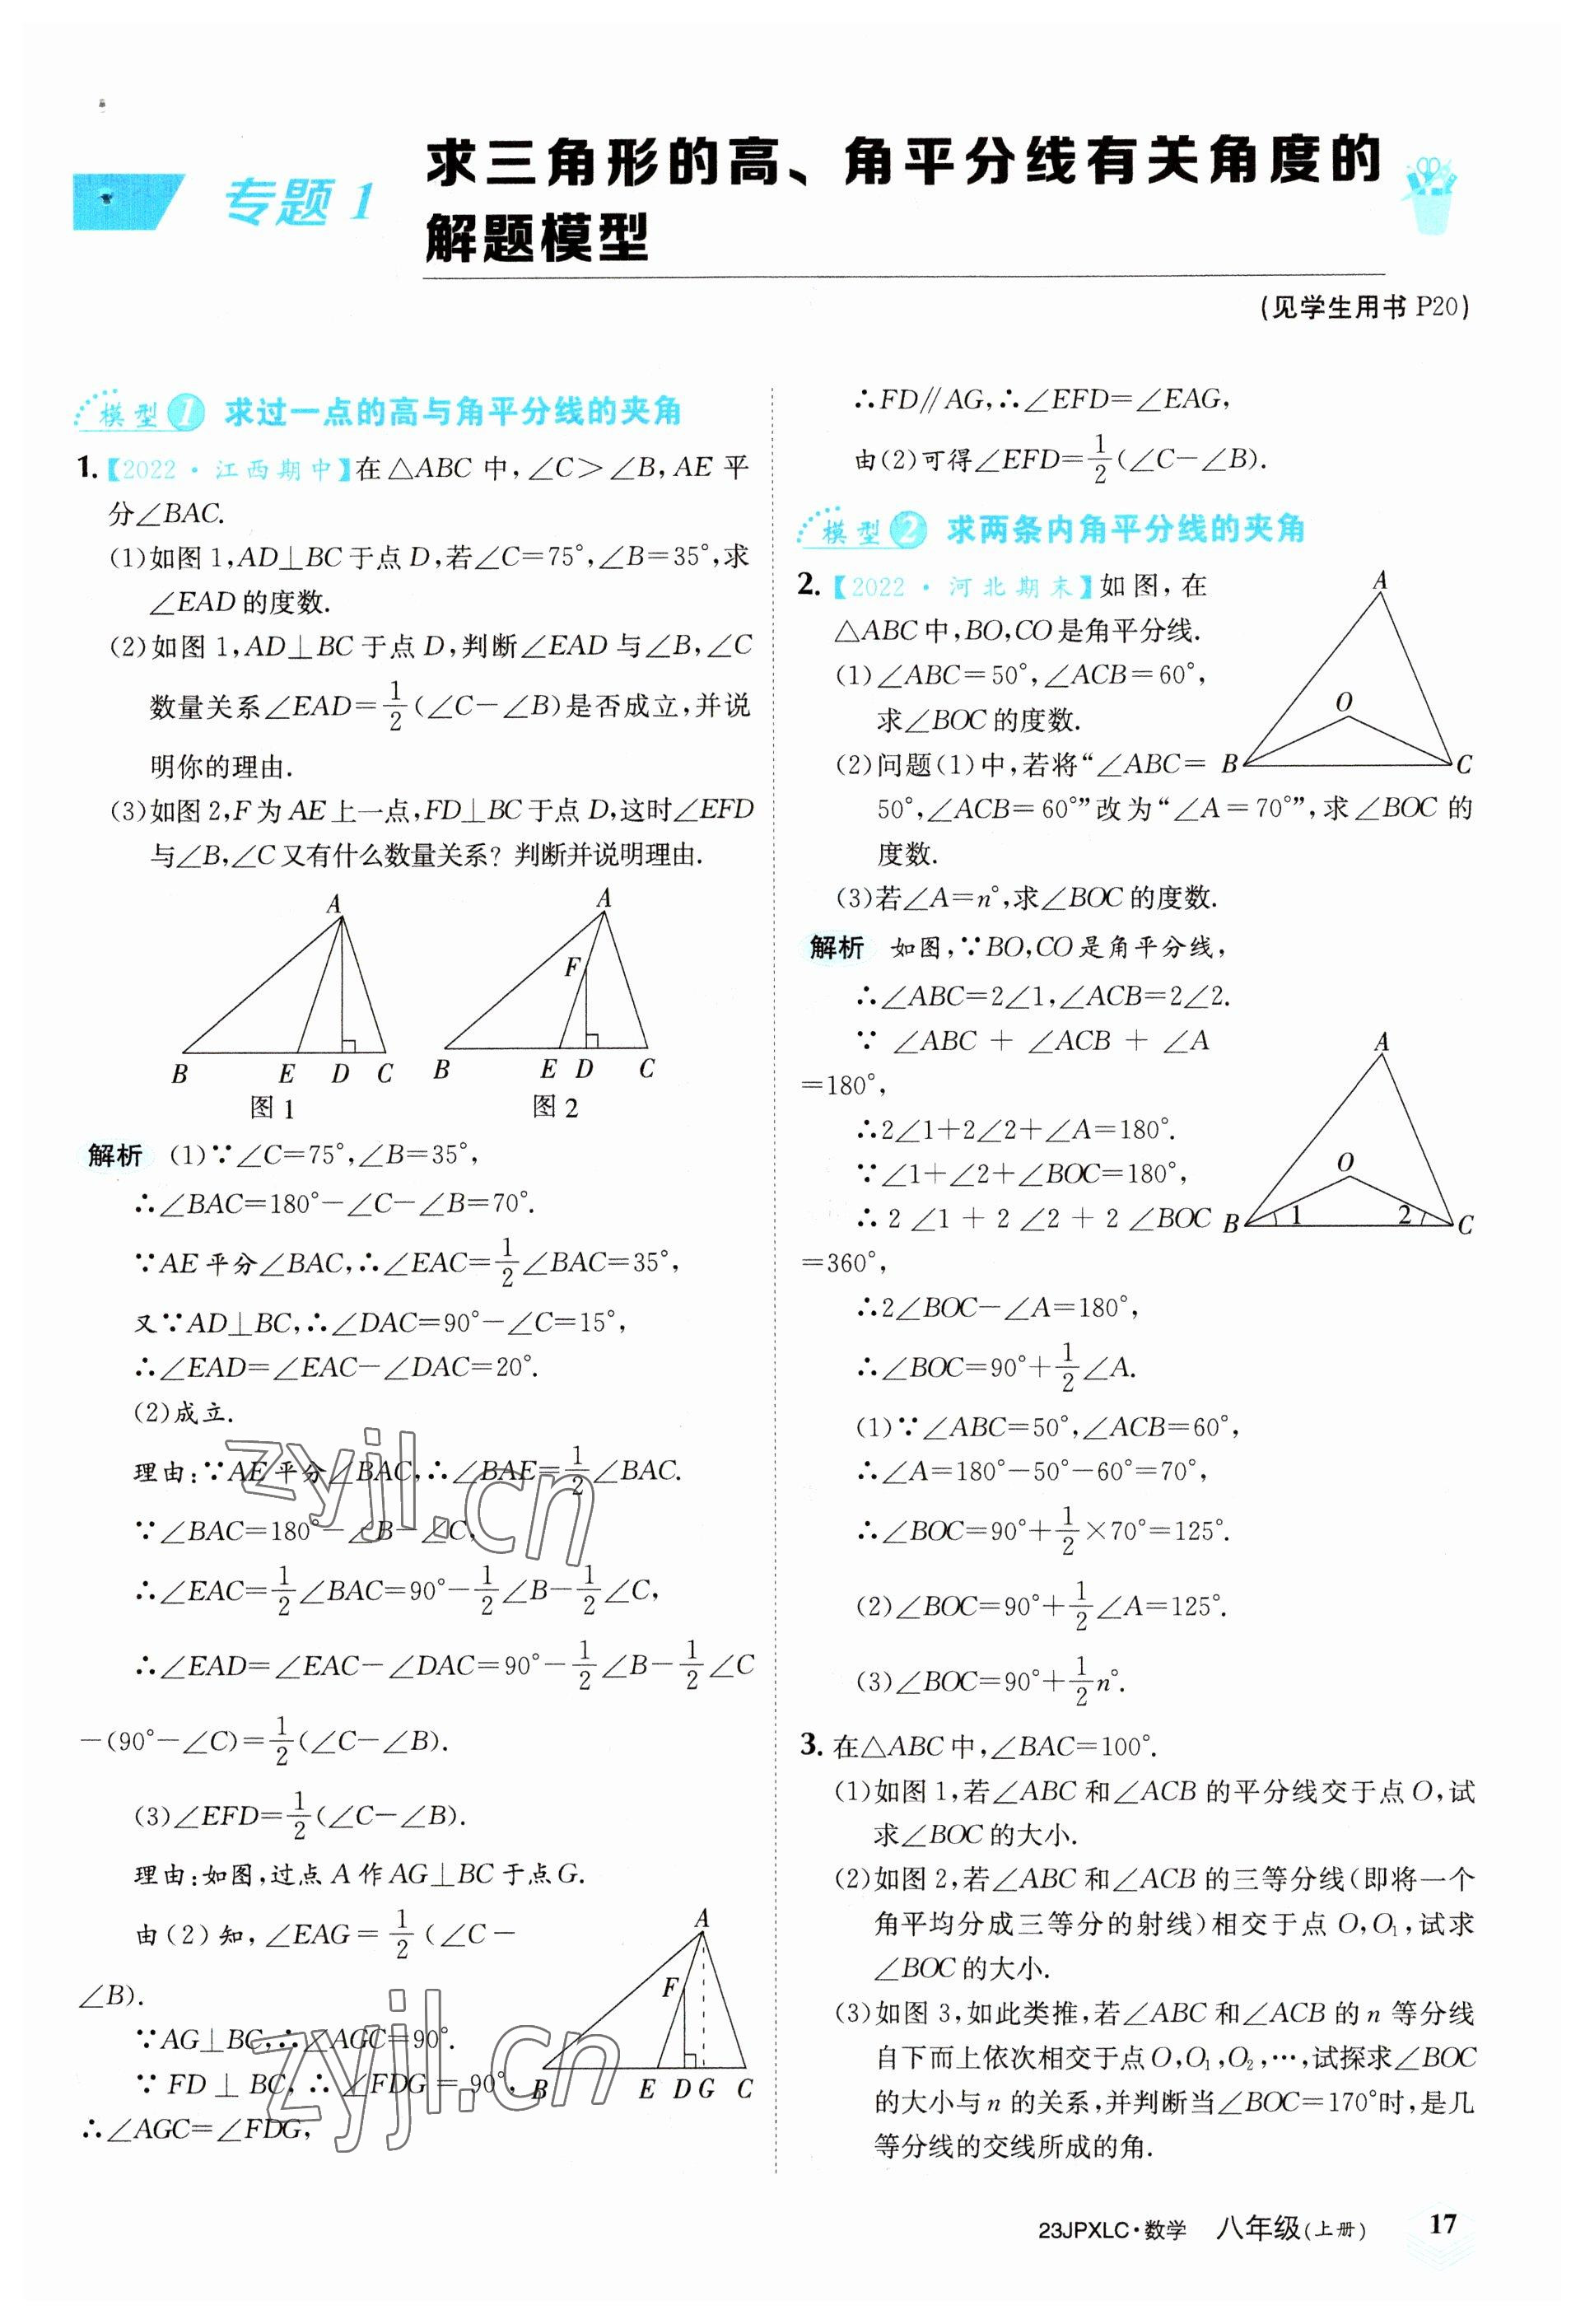 专题1
求三角形的高、角平分线有关角度的
解题模型
(见学生用书 P20)
模型1 求过一点的高与角平分线的夹角
1.【2022·江西期中】在△ABC 中,∠C>∠B,AE 平
分∠BAC.
(1)如图 1,AD⊥BC 于点 D,若∠C=75°,∠B=35°,求
∠EAD 的度数.
(2)如图 1,AD⊥BC 于点 D,判断∠EAD 与∠B,∠C
数量关系∠EAD=1/2(∠C-∠B)是否成立,并说
明你的理由.
(3)如图 2,F 为 AE 上一点,FD⊥BC 于点 D,这时∠EFD
与∠B,∠C 又有什么数量关系? 判断并说明理由.
A
B E D C
图 1
A
F
B E D C
图 2
解析 (1)∵∠C=75°,∠B=35°,
∴∠BAC=180°-∠C-∠B=70°.
∵AE 平分∠BAC,∴∠EAC=1/2∠BAC=35°,
又∵AD⊥BC,∴∠DAC=90°-∠C=15°,
∴∠EAD=∠EAC-∠DAC=20°.
(2)成立.
理由:∵AE 平分∠BAC,∴∠BAE=1/2∠BAC.
∵∠BAC=180°-∠B-∠C,
∴∠EAC=1/2∠BAC=90°-1/2∠B-1/2∠C,
∴∠EAD=∠EAC-∠DAC=90°-1/2∠B-1/2∠C
-(90°-∠C)=1/2(∠C-∠B).
(3)∠EFD=1/2(∠C-∠B).
理由:如图,过点 A 作 AG⊥BC 于点 G.
由(2)知,∠EAG=1/2(∠C-
∠B).
∵AG⊥BC,∴∠AGC=90°.
∵FD⊥BC,∴∠FDG=90°,
∴∠AGC=∠FDG,
A
F
B E D G C
zyjl.cn
zyjl.cn
∴FD∥AG,∴∠EFD=∠EAG,
由(2)可得∠EFD=1/2(∠C-∠B).
模型2 求两条内角平分线的夹角
2.【2022·河北期末】如图,在
△ABC 中,BO,CO 是角平分线.
(1)∠ABC=50°,∠ACB=60°,
求∠BOC 的度数.
(2)问题(1)中,若将“∠ABC=
50°,∠ACB=60°”改为“∠A=70°”,求∠BOC 的
度数.
(3)若∠A=n°,求∠BOC 的度数.
A
O
B C
解析 如图,∵BO,CO 是角平分线,
∴∠ABC=2∠1,∠ACB=2∠2.
∵ ∠ABC + ∠ACB + ∠A
=180°,
∴2∠1+2∠2+∠A=180°.
∵∠1+∠2+∠BOC=180°,
∴2∠1+2∠2+2∠BOC
=360°,
∴2∠BOC-∠A=180°,
∴∠BOC=90°+1/2∠A.
A
O
B 1 2 C
(1)∵∠ABC=50°,∠ACB=60°,
∴∠A=180°-50°-60°=70°,
∴∠BOC=90°+1/2×70°=125°.
(2)∠BOC=90°+1/2∠A=125°.
(3)∠BOC=90°+1/2n°.
3.在△ABC 中,∠BAC=100°.
(1)如图 1,若∠ABC 和∠ACB 的平分线交于点 O,试
求∠BOC 的大小.
(2)如图 2,若∠ABC 和∠ACB 的三等分线(即将一个
角平均分成三等分的射线)相交于点 O,O₁,试求
∠BOC 的大小.
(3)如图 3,如此类推,若∠ABC 和∠ACB 的 n 等分线
自下而上依次相交于点 O,O₁,O₂,…,试探求∠BOC
的大小与 n 的关系,并判断当∠BOC=170°时,是几
等分线的交线所成的角.
23JPXLC·数学 八年级(上册) 17